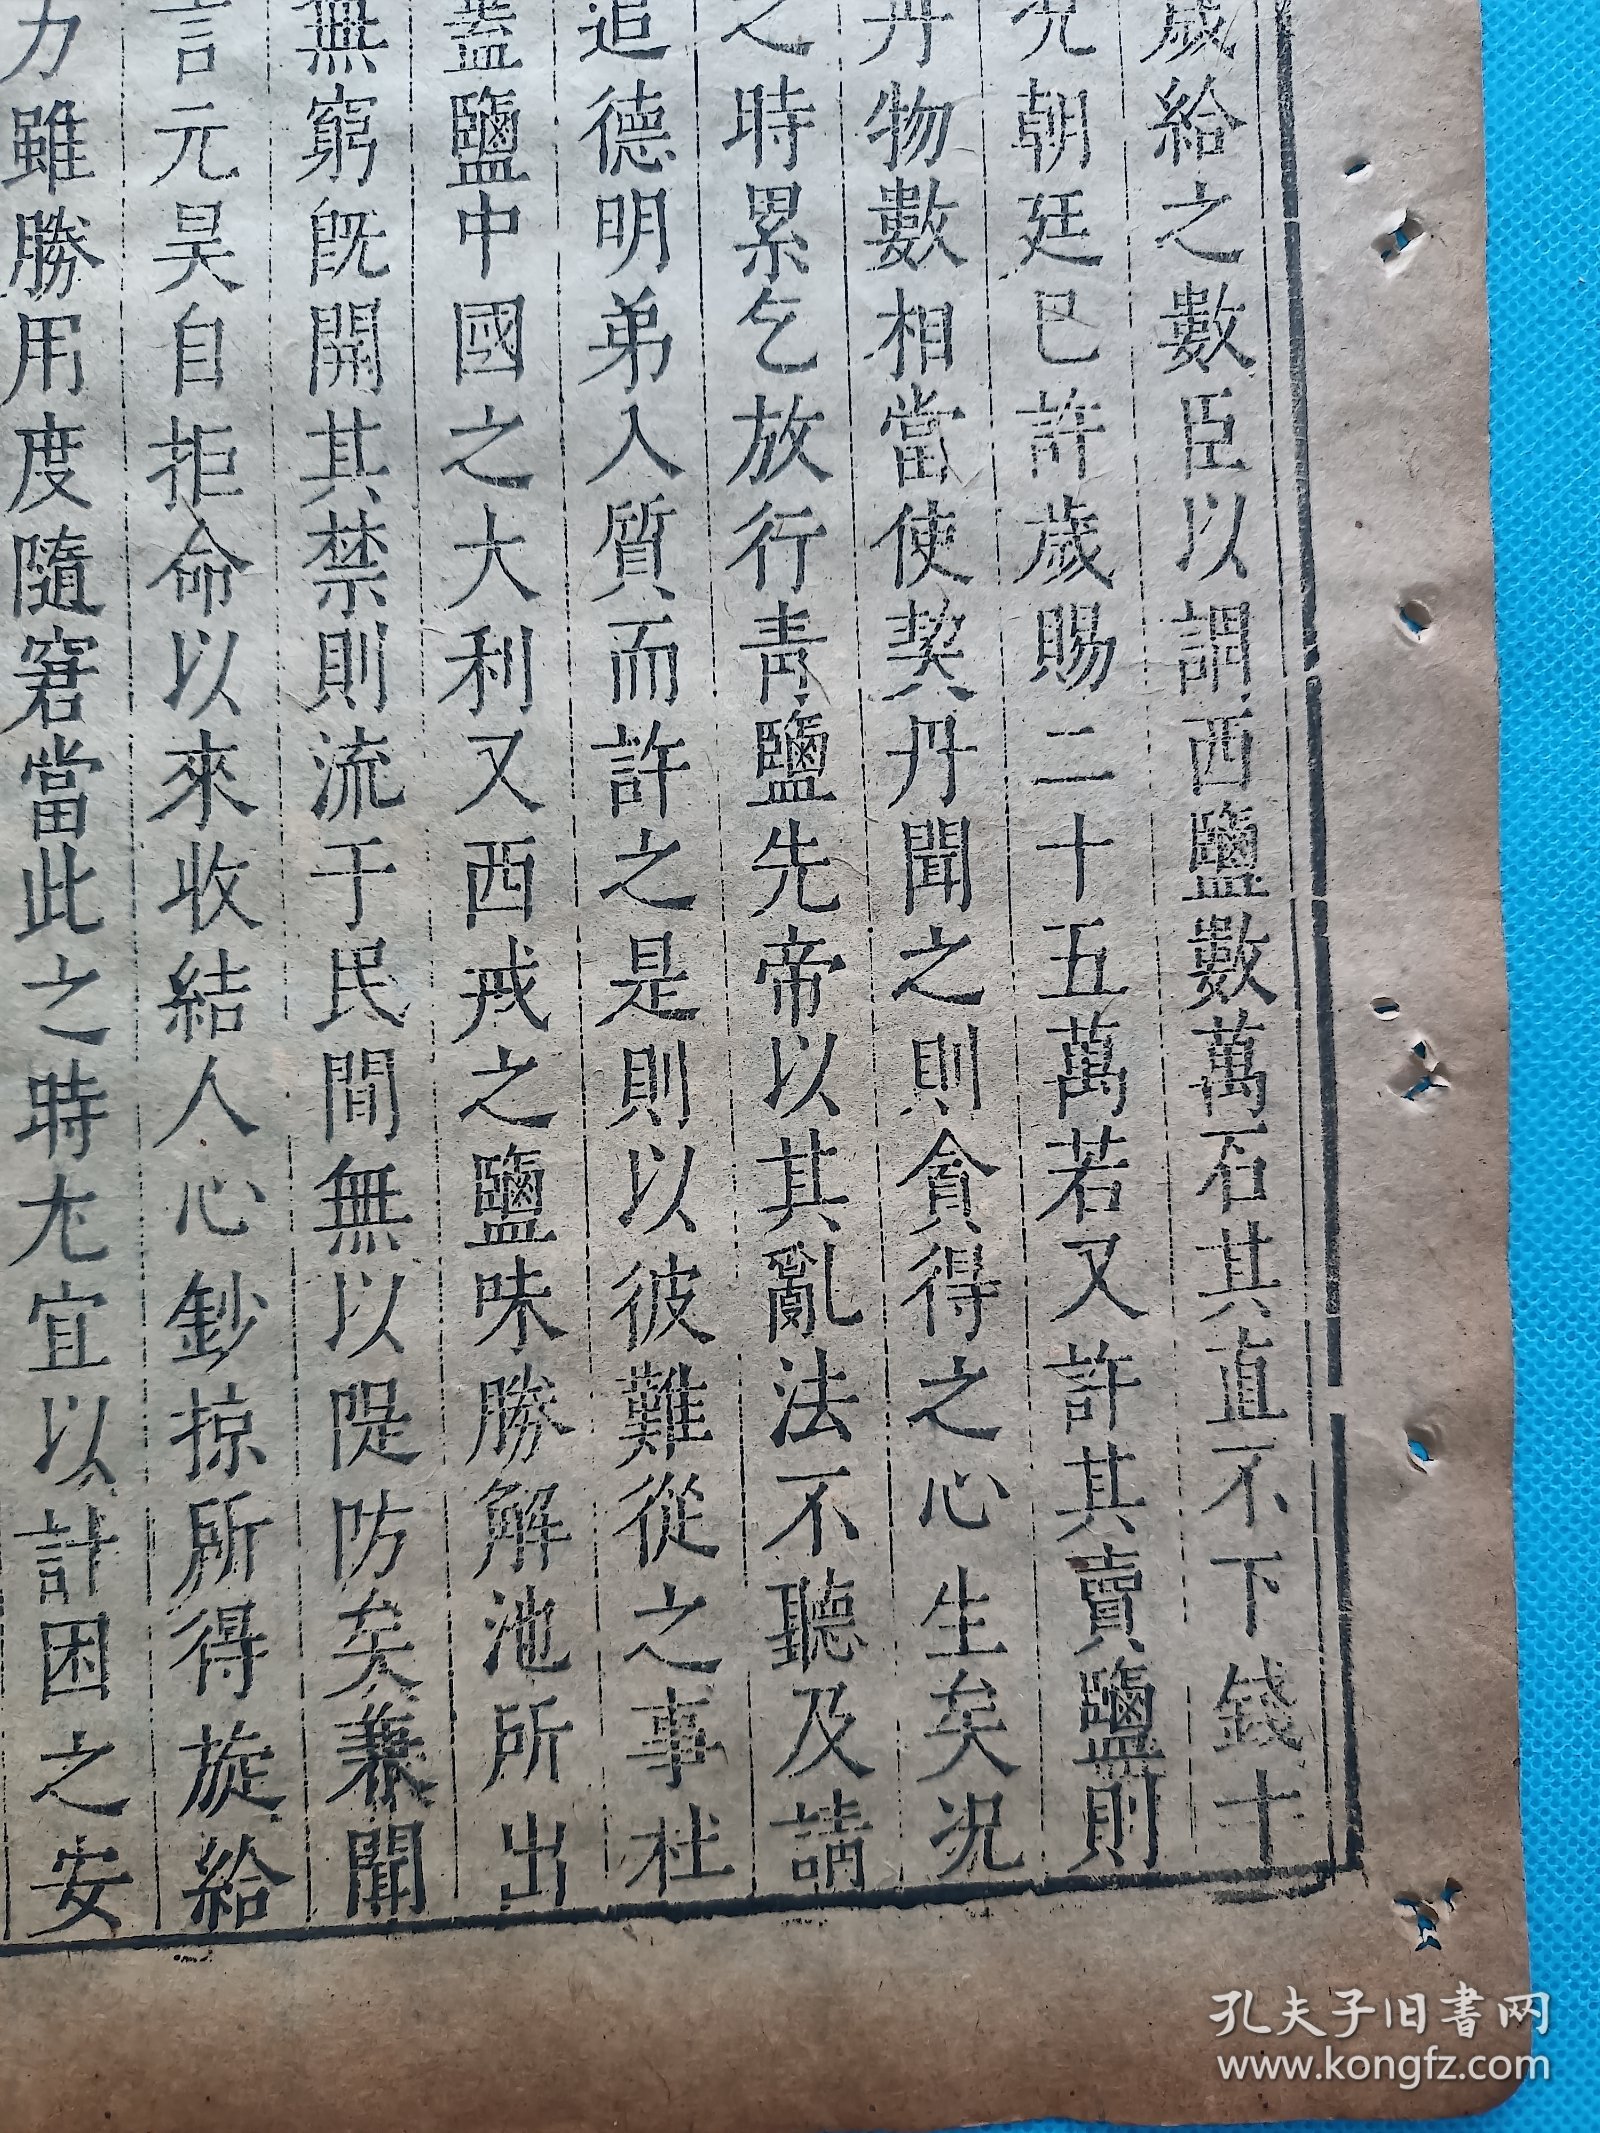 歲給之數臣以謂西鹽數萬石其直不下錢十
況朝廷已許歲賜二十五萬若又許其賣鹽則
丹物數相當使契丹聞之則貪得之心生矣況
之時累乞放行青鹽先帝以其亂法不聽及請
追德明弟入質而許之是則以彼難從之事杜
蓋鹽中國之大利又西戎之鹽味勝解池所出
無窮旣開其禁則流于民間無以隄防矣兼聞
言元昊自拒命以來收結人心鈔掠所得旋給
力雖勝用度隨窘當此之時尤宜以計困之安
孔夫子旧书网
www.kongfz.com